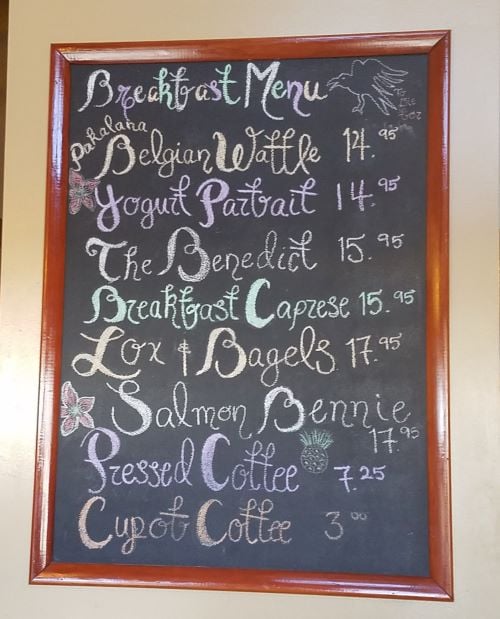 Breakfast Menu
Pakalana
Belgian Waffle 14.95
Yogurt Parfait 14.95
The Benedict 15.95
Breakfast Caprese 15.95
Lox & Bagels 17.95
Salmon Bennie
17.95
Pressed Coffee 7.25
Cup of Coffee 3.00